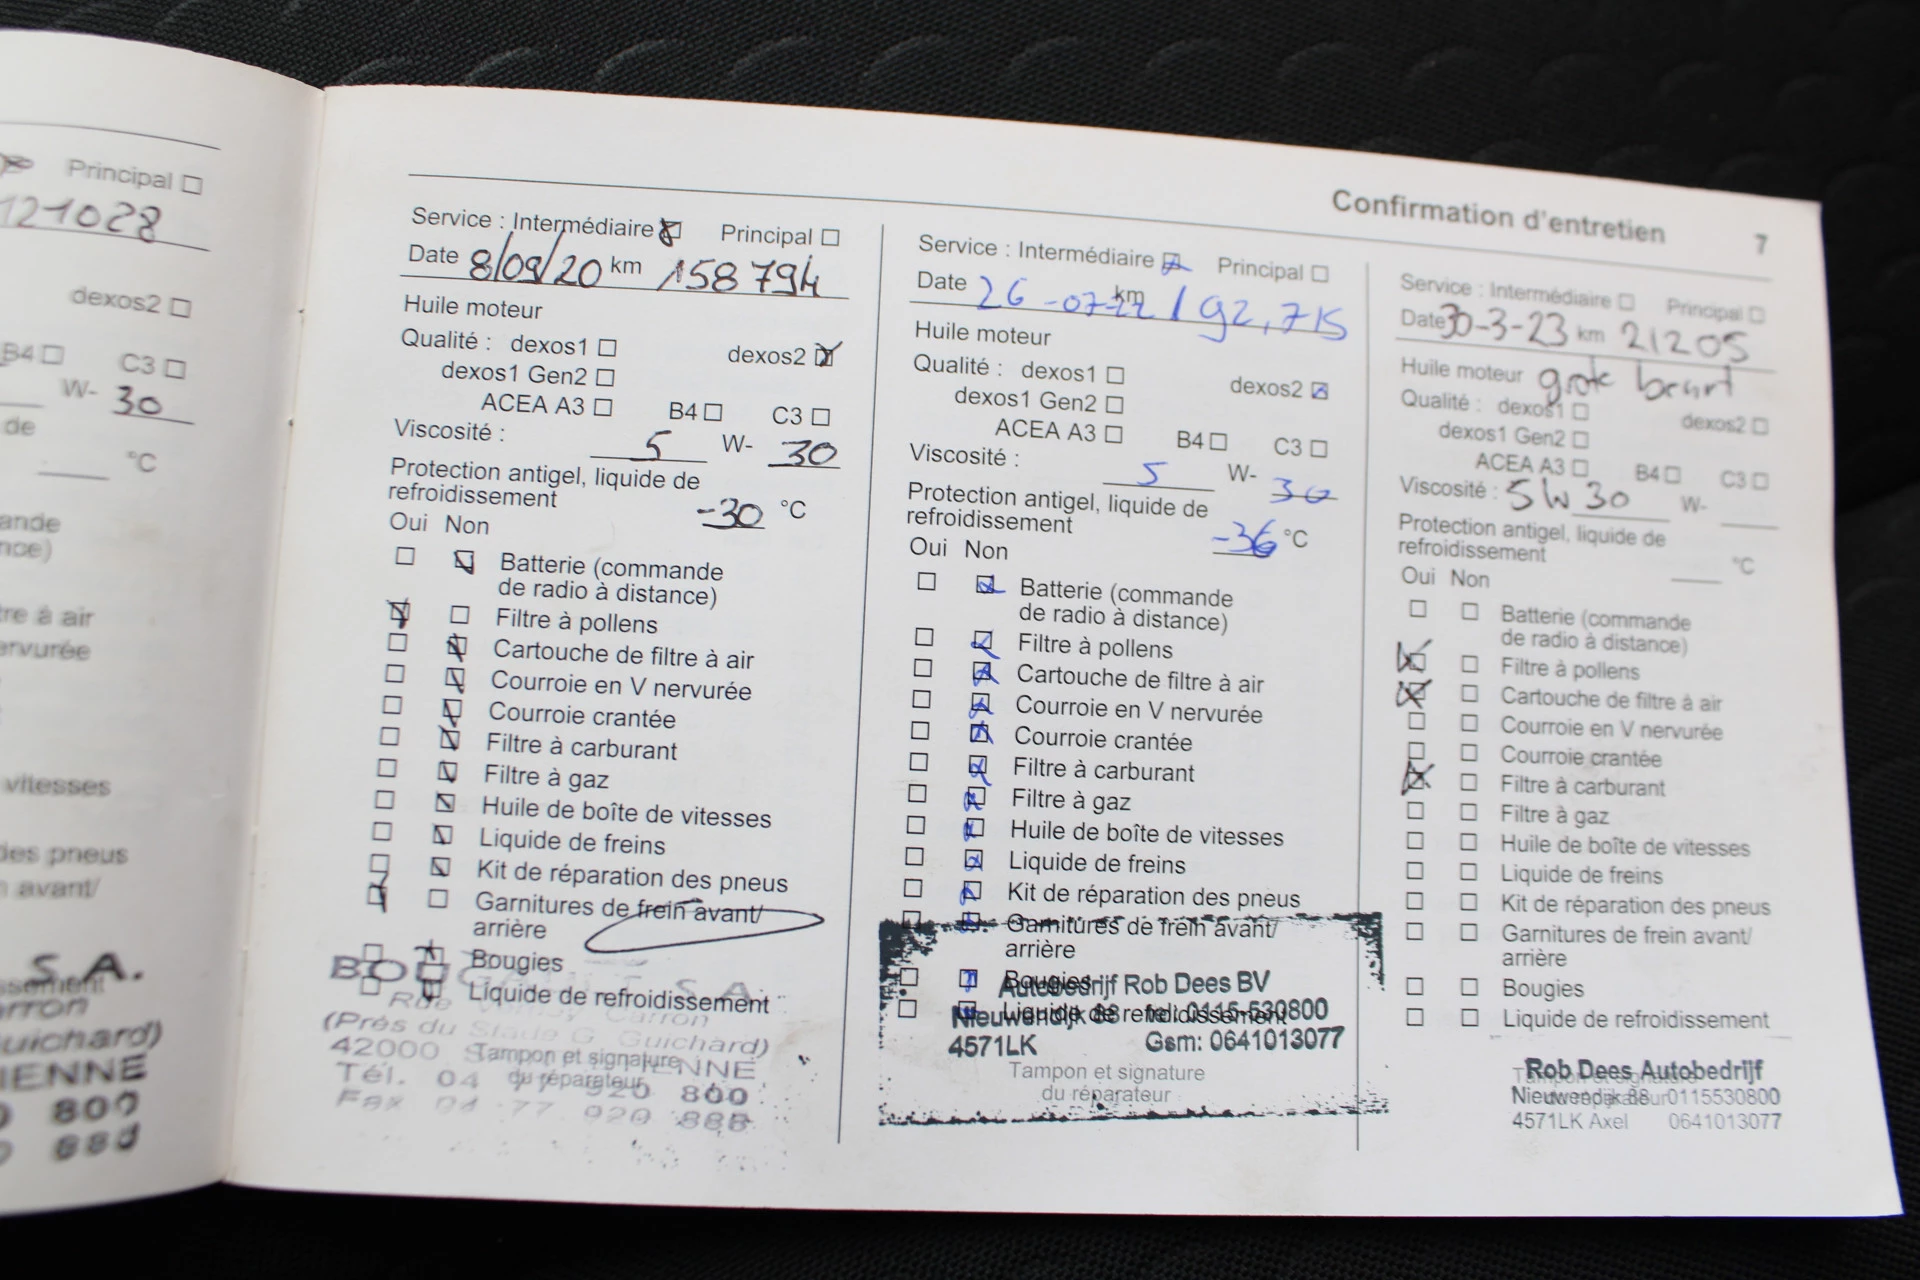 Principal
121028
dexos2
B4 C3
W- 30
de
°C
ande
nce)
tre à air
ervurée
vitesses
des pneus
n avant/
S.A.
ssement
arron
uichard)
IENNE
800
888
Confirmation d'entretien 7
Service : Intermédiaire Principal
Date 8/09/20 km 158 794
Huile moteur
Qualité : dexos1 dexos2
dexos1 Gen2
ACEA A3 B4 C3
Viscosité : 5 W- 30
Protection antigel, liquide de
refroidissement -30 °C
Oui Non
Batterie (commande
de radio à distance)
Filtre à pollens
Cartouche de filtre à air
Courroie en V nervurée
Courroie crantée
Filtre à carburant
Filtre à gaz
Huile de boîte de vitesses
Liquide de freins
Kit de réparation des pneus
Garnitures de frein avant/
arrière
Bougies
S.A.
Liquide de refroidissement
Rue Carron
(Près du Stade G Guichard)
42000 ENNE
Tampon et signature
du réparateur
Tél. 04 77 920 800
Fax 04 77 920 888
Service : Intermédiaire Principal
Date 26-07-22 km 192,715
Huile moteur
Qualité : dexos1 dexos2
dexos1 Gen2
ACEA A3 B4 C3
Viscosité : 5 W- 30
Protection antigel, liquide de
refroidissement -36 °C
Oui Non
Batterie (commande
de radio à distance)
Filtre à pollens
Cartouche de filtre à air
Courroie en V nervurée
Courroie crantée
Filtre à carburant
Filtre à gaz
Huile de boîte de vitesses
Liquide de freins
Kit de réparation des pneus
Garnitures de frein avant/
arrière
Bougies
Autobedrijf Rob Dees BV
Liquide de refroidissement
Nieuwendijk 88 tel: 0115-530800
4571LK Gsm: 0641013077
Tampon et signature
du réparateur
Service : Intermédiaire Principal
Date 30-3-23 km 21205
Huile moteur grote beurt
Qualité : dexos1 dexos2
dexos1 Gen2
ACEA A3 B4 C3
Viscosité : 5W30 W-
Protection antigel, liquide de
refroidissement °C
Oui Non
Batterie (commande
de radio à distance)
Filtre à pollens
Cartouche de filtre à air
Courroie en V nervurée
Courroie crantée
Filtre à carburant
Filtre à gaz
Huile de boîte de vitesses
Liquide de freins
Kit de réparation des pneus
Garnitures de frein avant/
arrière
Bougies
Liquide de refroidissement
Rob Dees Autobedrijf
Tampon et signature
Nieuwendijk 88 0115530800
du réparateur
4571LK Axel 0641013077